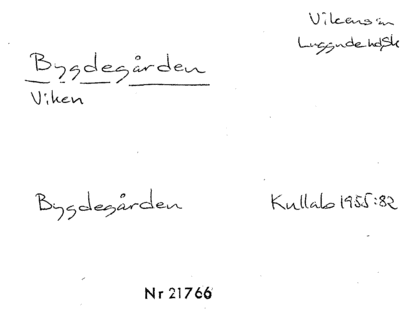 Vikens sn
Luggude hd, Sk
Bygdegården
Viken
Bygdegården Kullabo 1955:82
Nr 21766